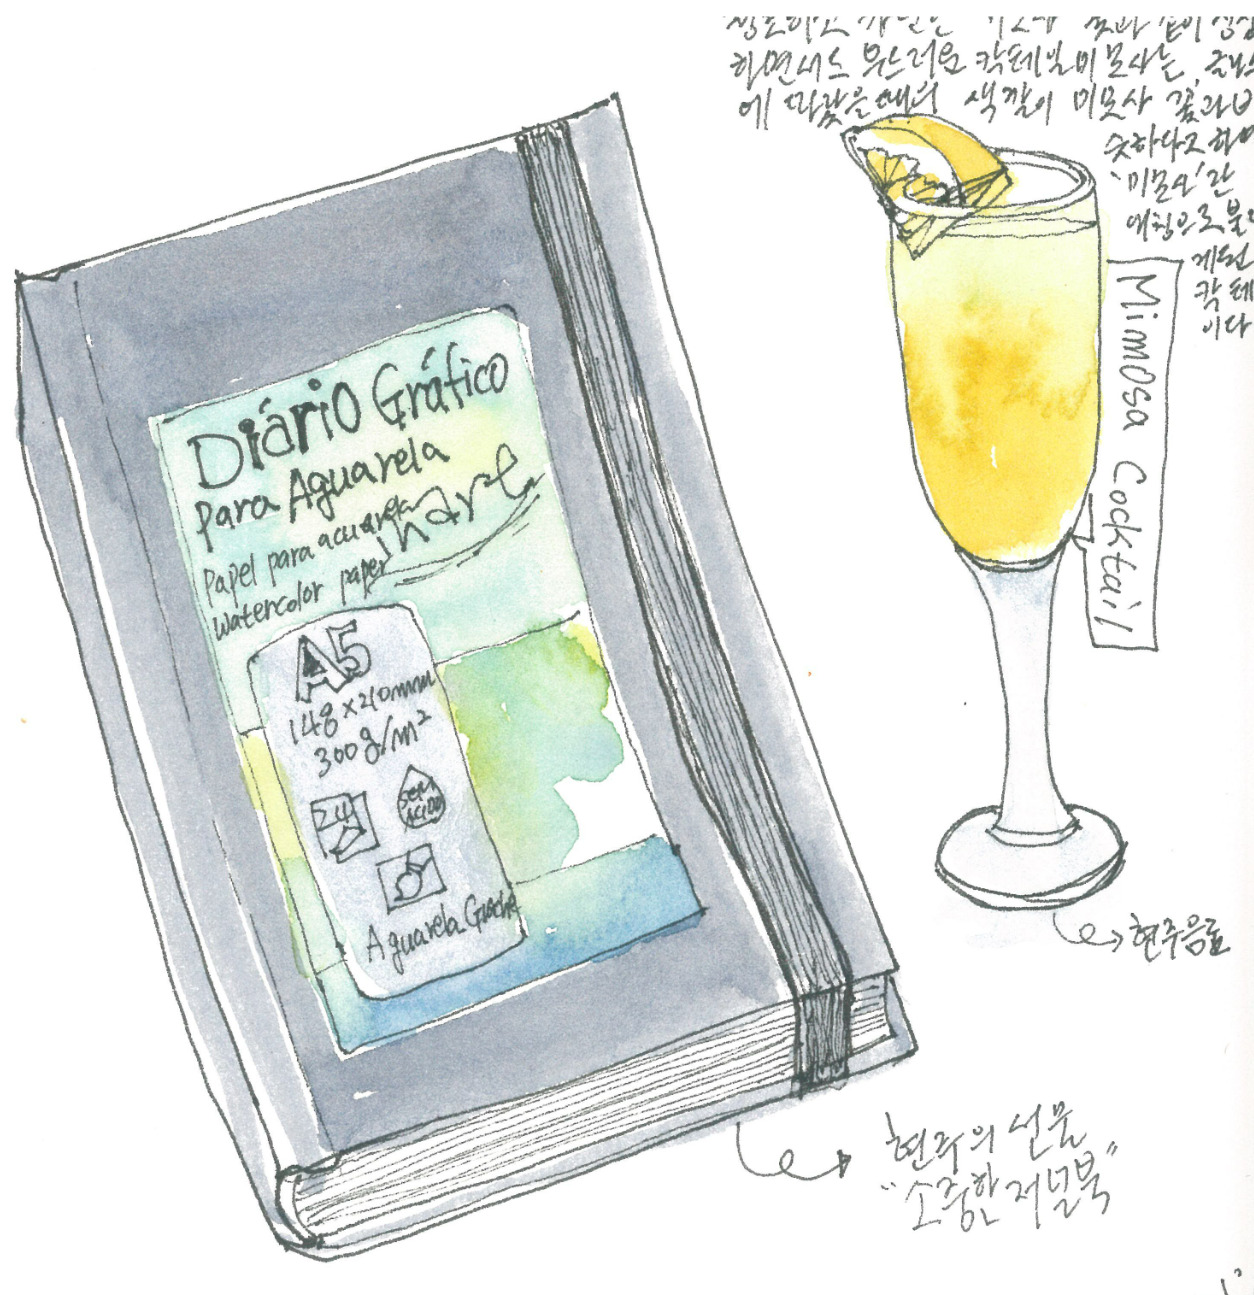 하면서도 부드러운 칵테일 미모사는,
에 따랐을 때의 색깔이 미모사 꽃과 비
슷하다고 하여
'미모사'란
애칭으로 불리
게 된
칵테
이다
Mimosa Cocktail
현주음료
Diário Gráfico
para Aguarela
Papel para acuarela
Watercolor paper
A5
148 x 210mm
300g/m²
SEM
ACIDO
Aguarela
현주의 선물
"소중한 저널북"